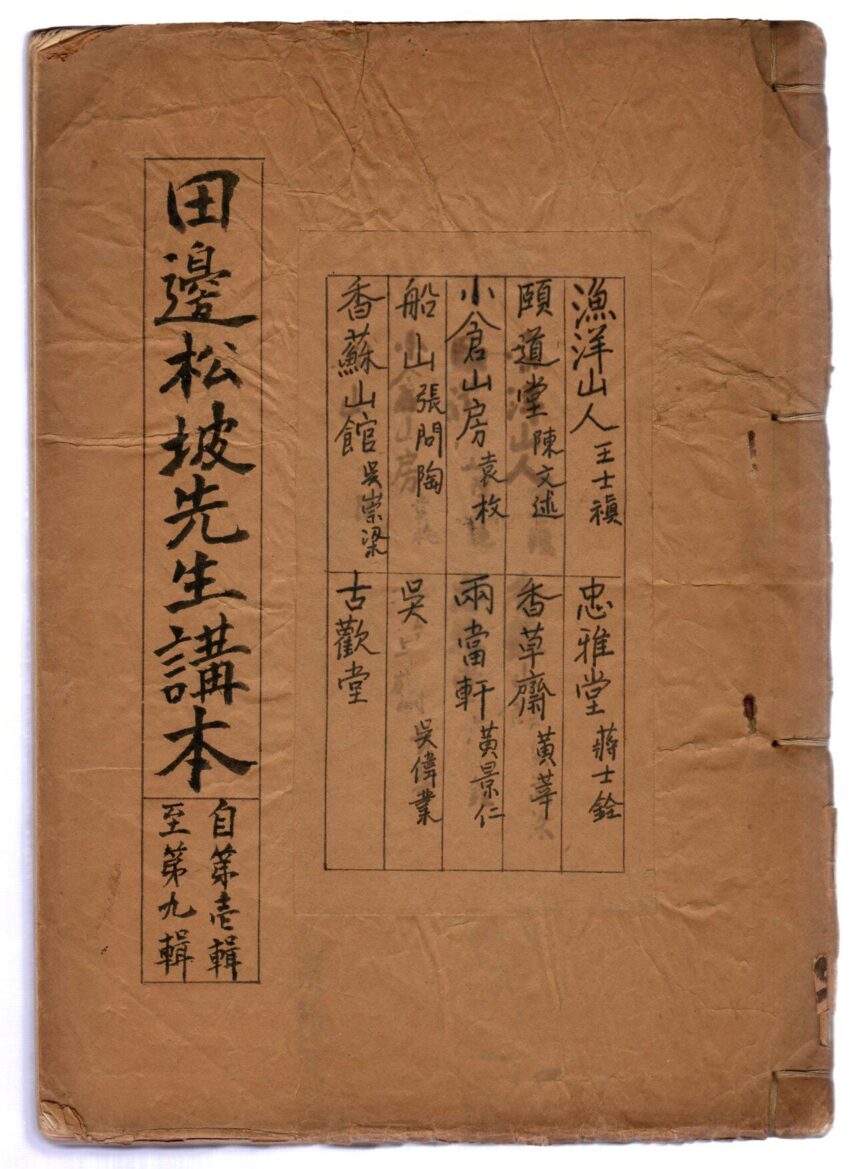 漁洋山人 王士禛
頤道堂 陳文述
小倉山房 袁枚
船山 張問陶
香蘇山館 吳嵩梁
忠雅堂 蔣士銓
香草齋 黃莘
兩當軒 黃景仁
吳 吳偉業
古歡堂
田邊松坡先生講本
自第壱輯
至第九輯